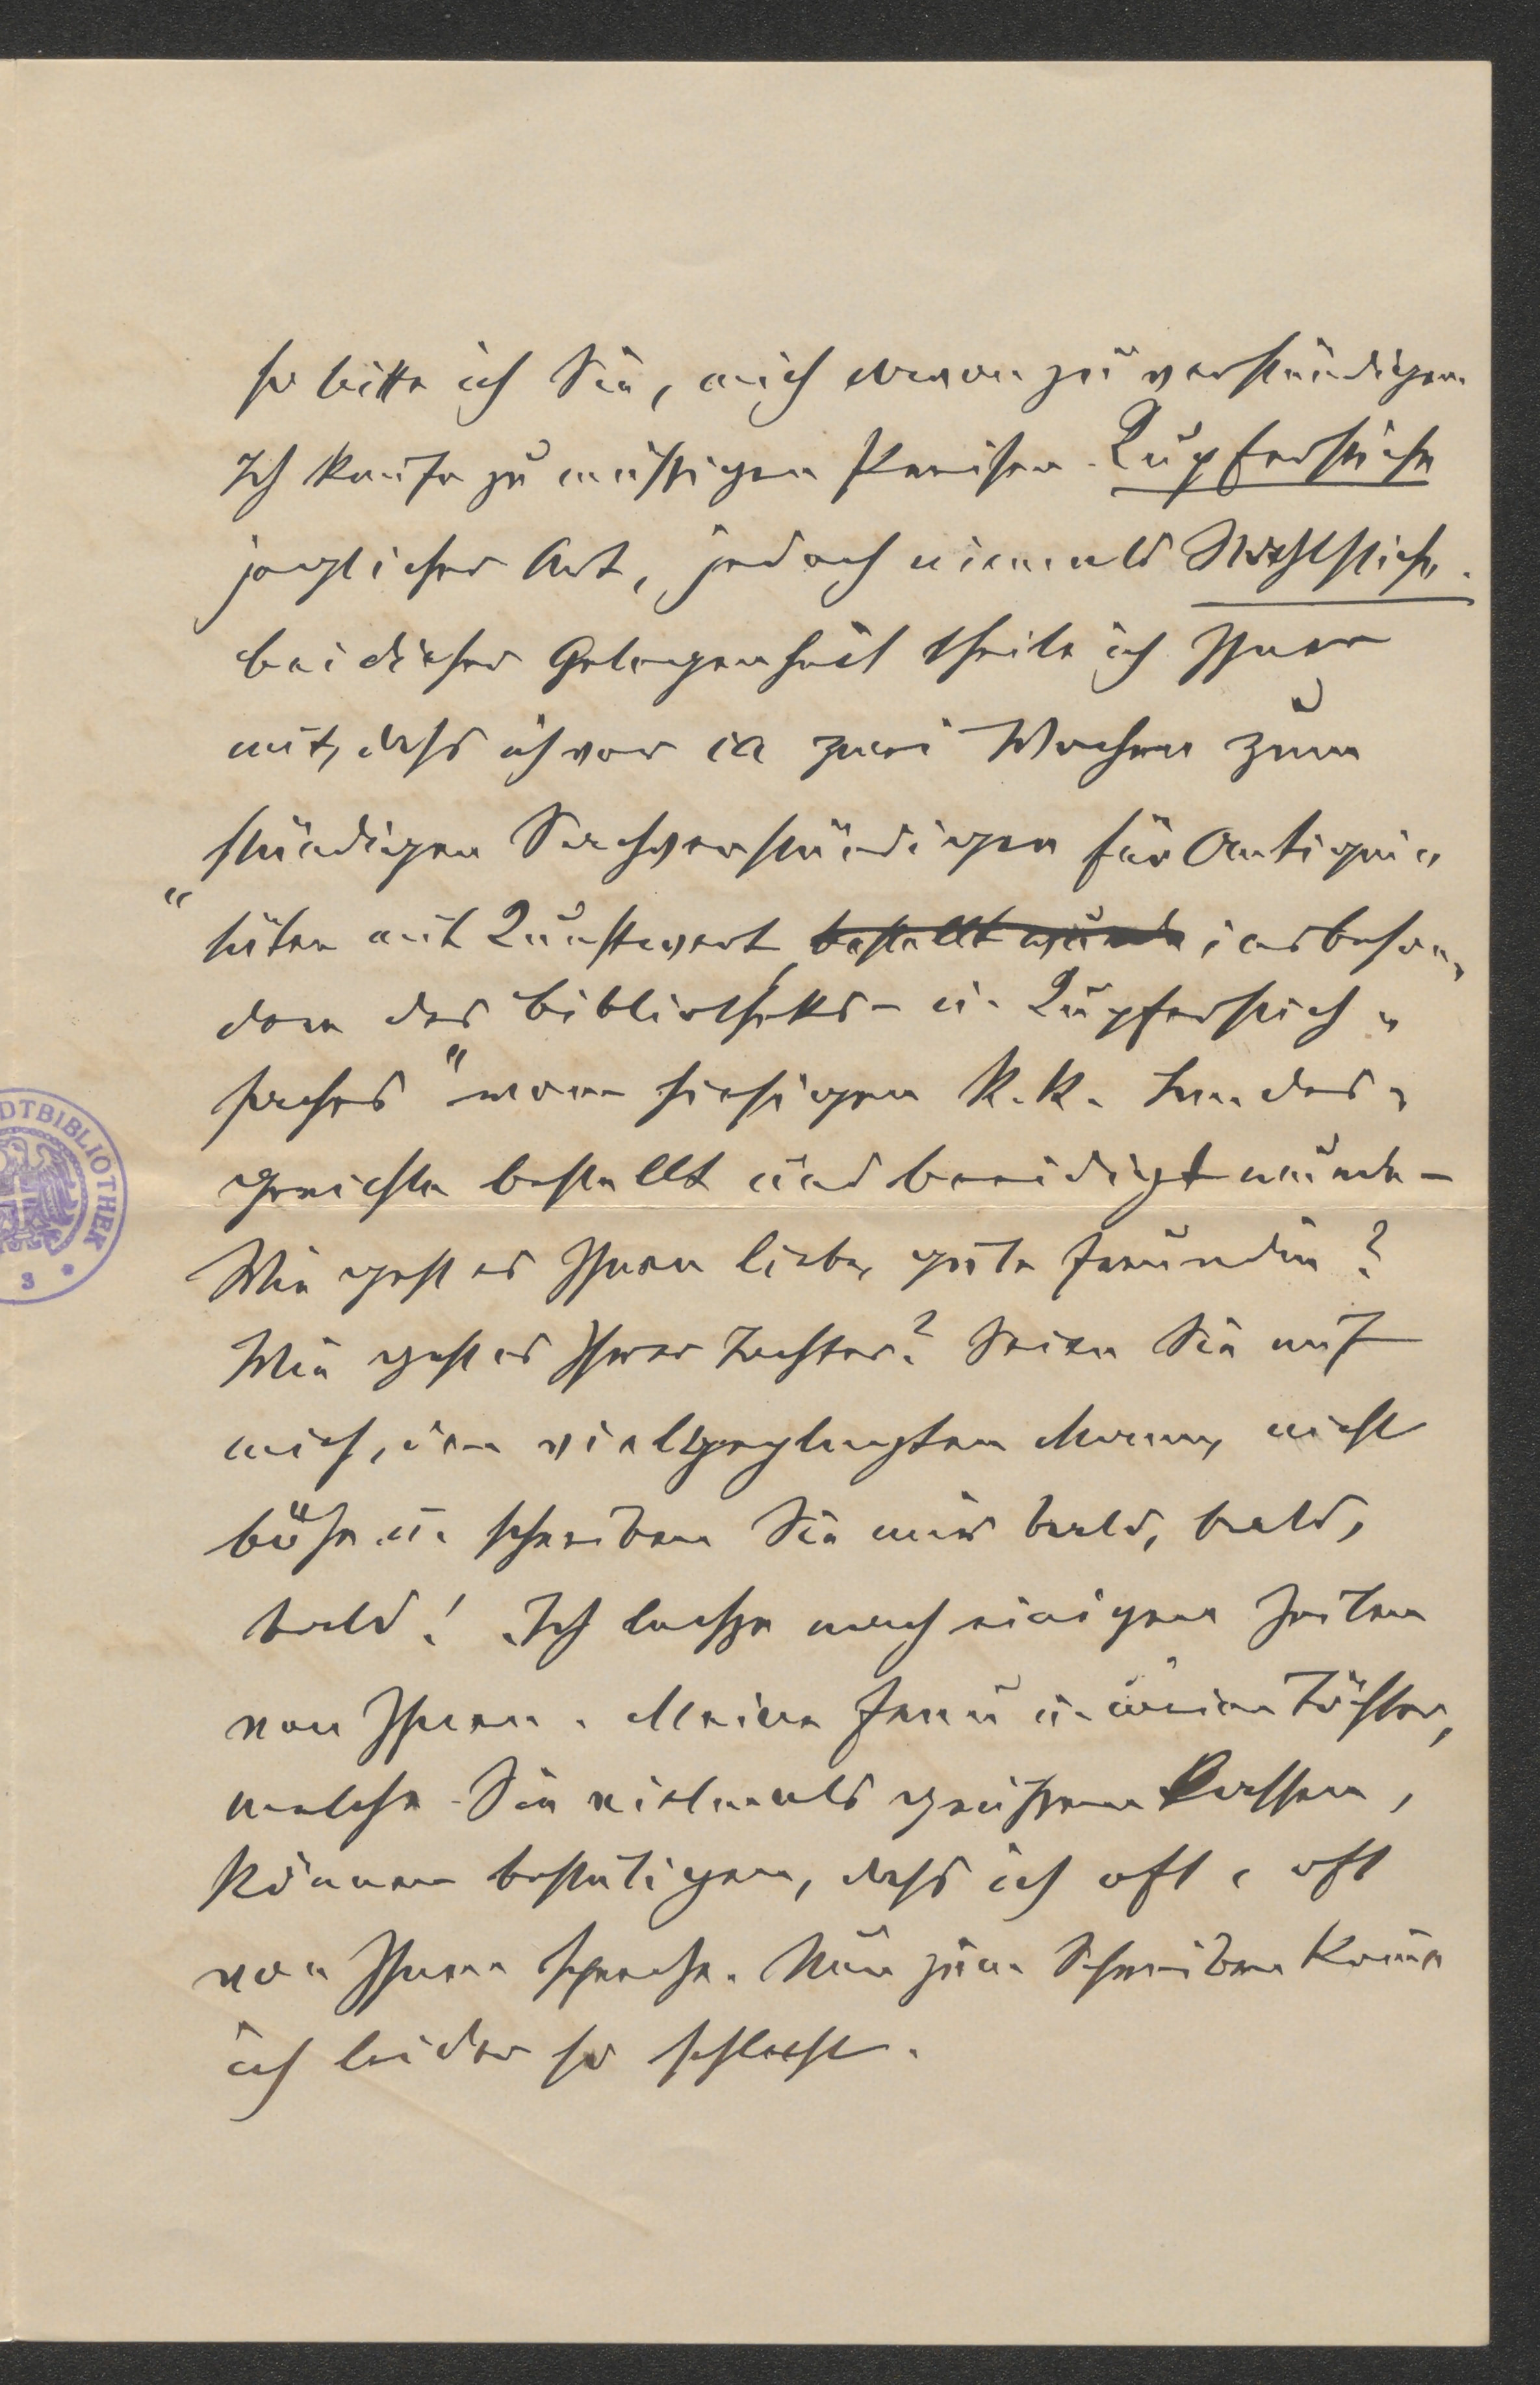 so bitte ich Sie, mich davon zu verständigen
Ich kaufe zu mässigen Preisen Kupferstiche
jeglicher Art, jedoch niemals Stahlstiche.
bei dieser Gelegenheit theile ich Ihnen
mit, dass ich vor ca zwei Wochen zum
ständigen Sachverständigen für Antiqui„
„täten mit Kunstwert bestellt wurde insbeson„
dere des Bibliotheks- u. Kupferstich„
faches" vom hiesigen k.k. Landes„
gerichte bestellt und beeidigt wurde –
Wie geht es Ihnen liebe, gute Freundin?
Wie geht es Ihrer Tochter? Seien Sie auf
mich, den vielgeplagten Mann, nicht
böse u. schreiben Sie mir bald, bald,
bald! Ich lechze nach einigen Zeilen
von Ihnen. Meine Frau u. meine Töchter,
welche Sie vielmals grüssen lassen,
können bestätigen, dass ich oft, oft
von Ihnen spreche. Nur zum Schreiben kom̄e
ich leider so schlecht.
DTBIBLIOTHEK
3